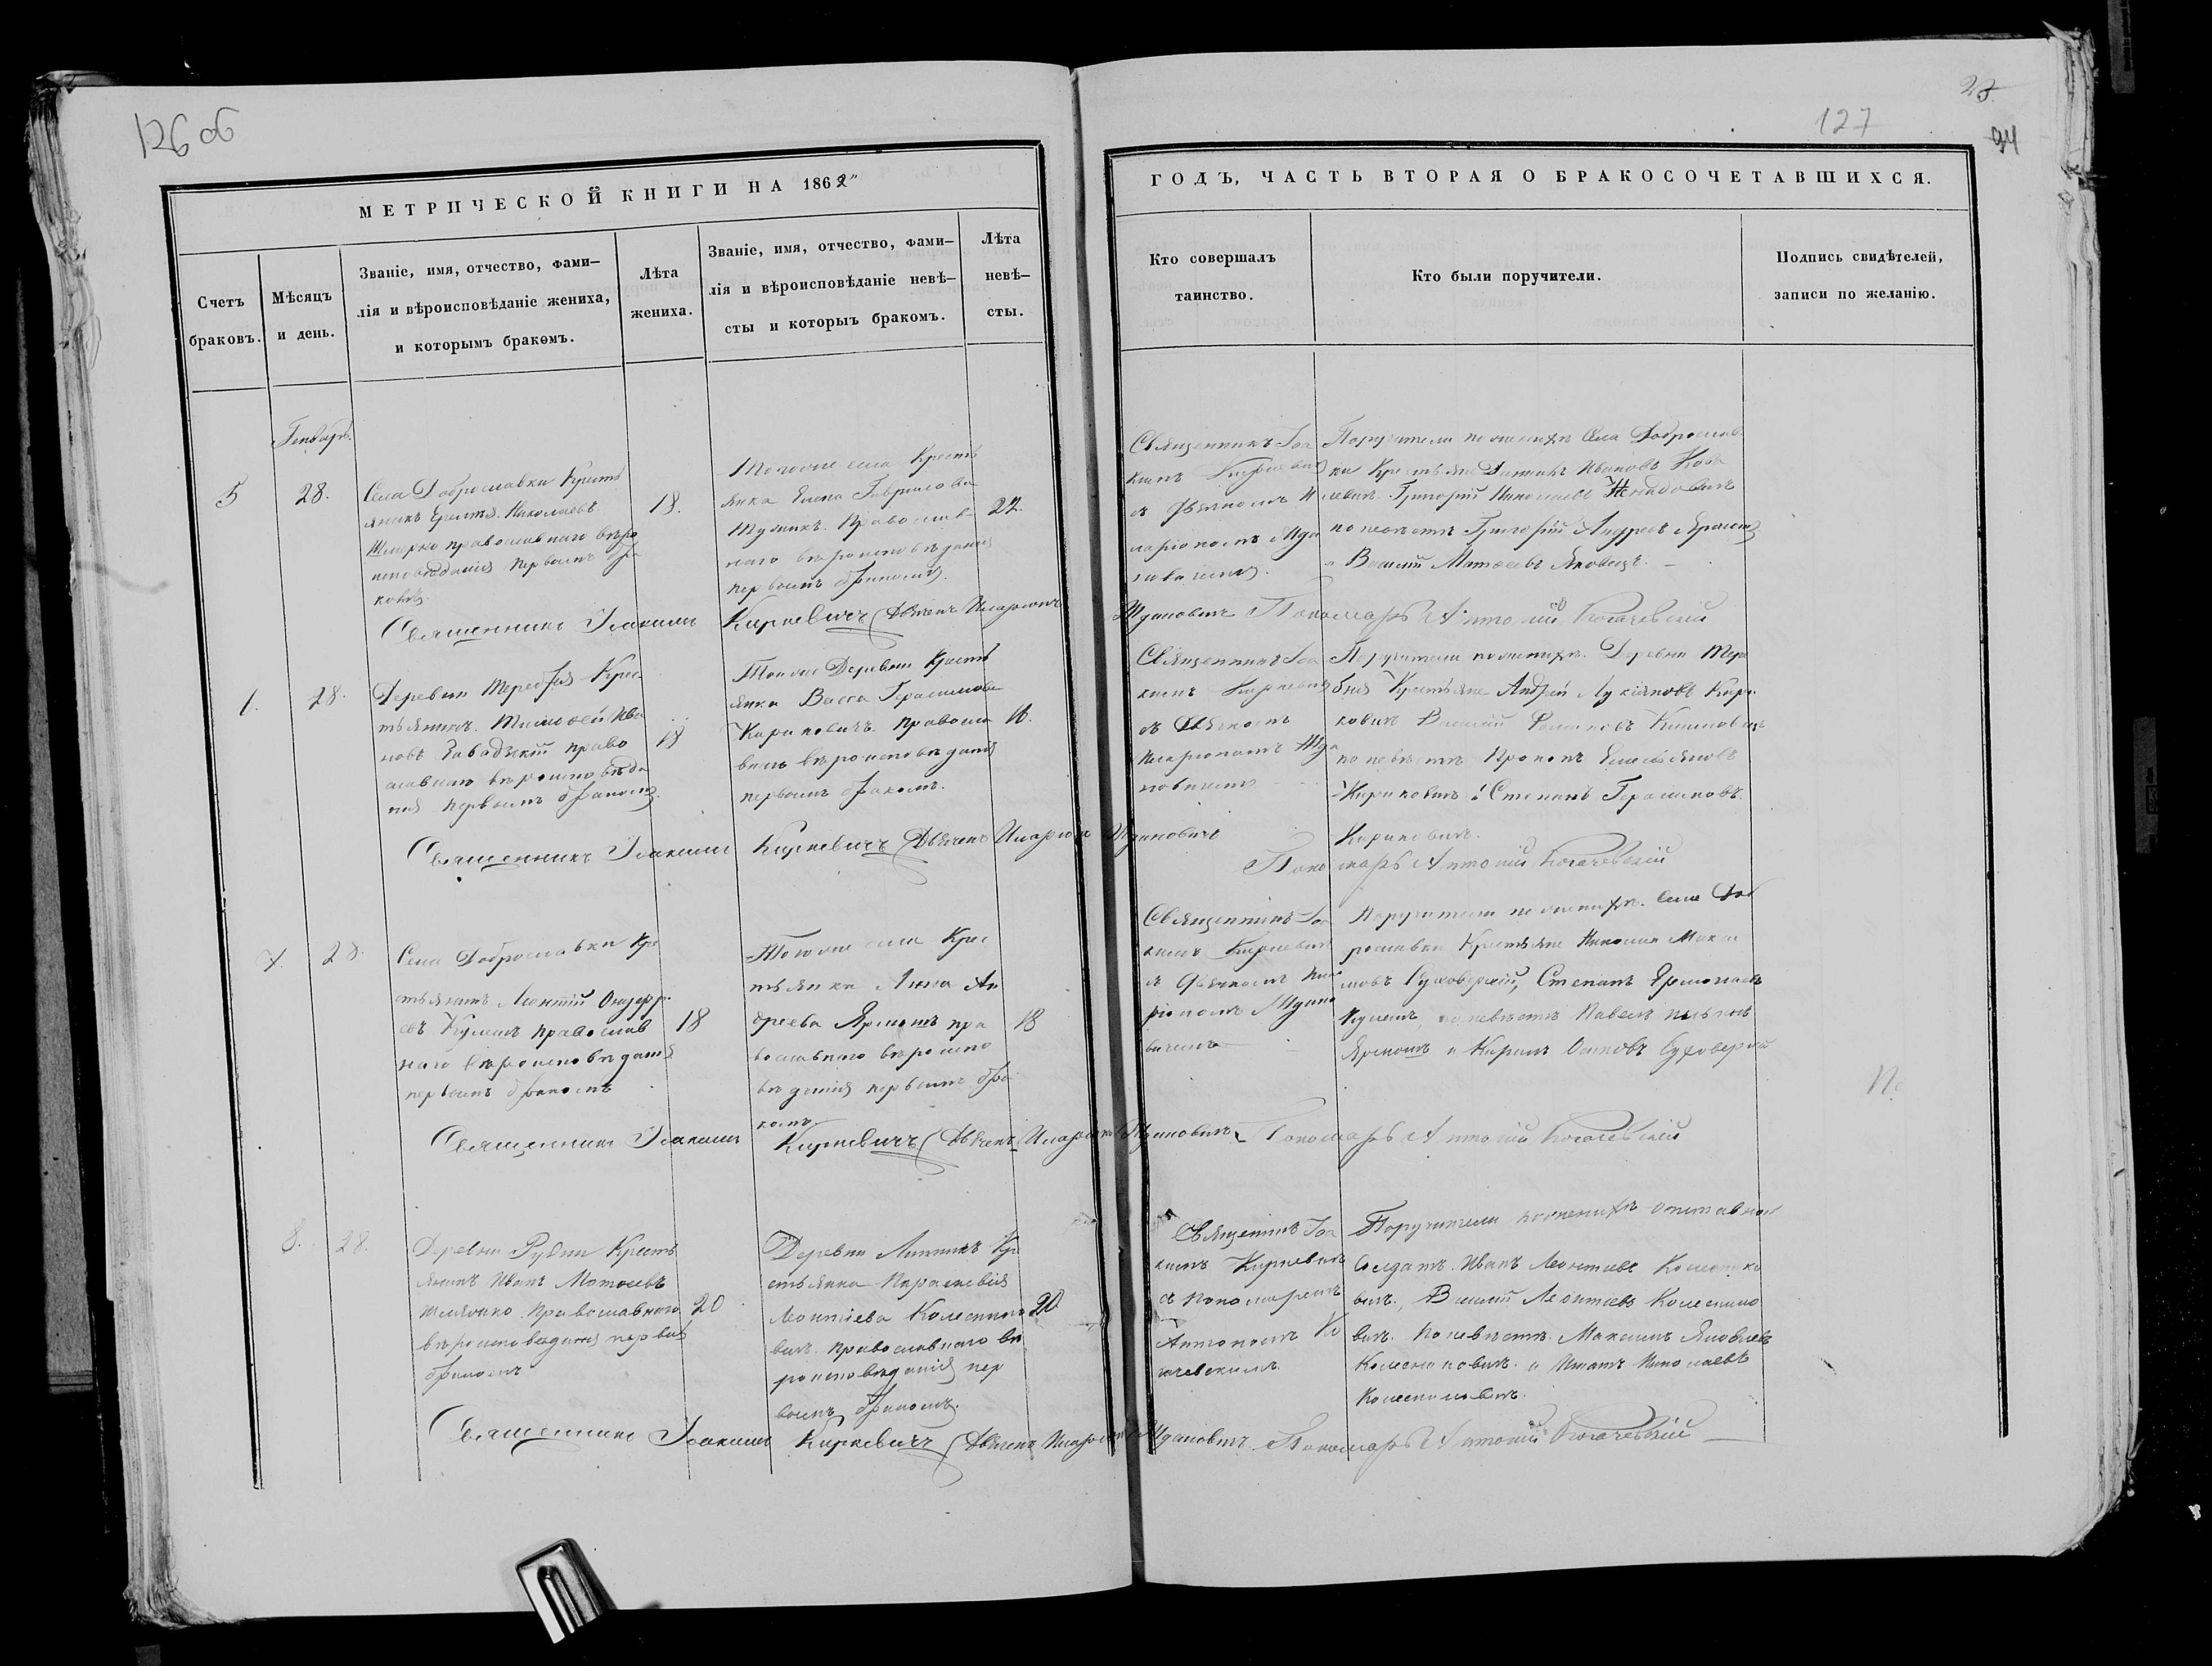 126 об
127
94
МЕТРИЧЕСКОЙ КНИГИ НА 1862
ГОДЪ, ЧАСТЬ ВТОРАЯ О БРАКОСОЧЕТАВШИХСЯ.
Счетъ
браковъ.
Мѣсяцъ
и день.
Званіе, имя, отчество, фами-
лія и вѣроисповѣданіе жениха,
и которымъ бракомъ.
Лѣта
жениха.
Званіе, имя, отчество, фами-
лія и вѣроисповѣданіе невѣ-
сты и которыъ бракомъ.
Лѣта
невѣ-
сты.
Кто совершалъ
таинство.
Кто были поручители.
Подпись свидѣтелей,
записи по желанію.
Генваръ.
5
28.
Села Доброславки Кресть
янинъ Николаевъ
православнаго вѣро
исповѣданія первымъ бра
комъ
18.
Тогоже села Кресть
янка Елена Гаврилова
Православ
наго вѣроисповѣданія
первымъ бракомъ.
22.
Священникъ Іоа
кимъ Киркевичъ
съ Дьячкомъ И
ларіономъ Жда
новичемъ.
Поручители по женихѣ Села Доброслав
ки Крестьяне Ивановъ Кова
левичъ Григорій Николаевъ
по невѣстѣ Григорій Андреевъ Ярмошъ
и Василій Матѳеевъ Яковецъ.
Священникъ Іоакимъ Киркевичъ Дьячекъ Иларіонъ Ждановичъ Пономарь Антоній Когачевскій
28.
Деревни Теребня Крес
тьянинъ Тимоѳей Ива
новъ Завадскій право
славнаго вѣроисповѣда
нія первымъ бракомъ.
18
Тойже Деревни Кресть
янка Васса Герасимова
Кириковичъ Правосла
внаго вѣроисповѣданія
первымъ бракомъ.
Священникъ Іоа
кимъ Киркевичъ
съ Дьячкомъ
Иларіономъ Жда
новичемъ
Поручители по женихѣ Деревни Тере
бня Крестьяне Андрей Лукіяновъ Кири
ковичъ Василій
по невѣстѣ Прокопъ Емельяновъ
Кириковичъ и Степанъ Герасимовъ
Кириковичъ.
Священникъ Іоакимъ Киркевичъ Дьячекъ Иларіонъ Ждановичъ
Пономарь Антоній Когачевскій
7.
28.
Села Доброславки Кре
стьянинъ Леонтій
Кулешъ православ
наго вѣроисповѣданія
первымъ бракомъ
18
Тогоже села Крес
тьянка Анна Ан
дреева Ярмошъ пра
вославнаго вѣроиспо
вѣданія первымъ бра
комъ
18
Священникъ Іоа
кимъ Киркевичъ
съ Дьячкомъ Ила
ріономъ Ждано
вичемъ
Поручители по женихѣ Села Доб
рославки Крестьяне Николай Макси
мовъ Суховерскій, Степанъ
Кулешъ, по невѣстѣ Павелъ
Ярмошъ и Кирилъ Осиповъ
Священникъ Іоакимъ Киркевичъ Дьячекъ Иларіонъ Ждановичъ Пономарь Антоній Когачевскій
8.
28.
Деревни Рудни Кресть
янинъ Иванъ Матѳеевъ
Шляхико Православнаго
вѣроисповѣданія первымъ
бракомъ
20
Деревни Кре
стьянка Параскевія
Леонтіева Колеснико
вичъ Православнаго вѣ
роисповѣданія пер
вымъ бракомъ.
20
Священникъ Іоа
кимъ Киркевичъ
съ пономаремъ
Антоніемъ Ко
гачевскимъ
Поручители по женихѣ отставной
Солдатъ Иванъ Леонтіевъ Колеснико
вичъ, Василій Леонтіевъ Колеснико
вичъ. По невѣстѣ Максимъ Яковлевъ
Колесниковичъ и Игнатъ Николаевъ
Колесниковичъ.
Священникъ Іоакимъ Киркевичъ Дьячекъ Иларіонъ Ждановичъ Пономарь Антоній Когачевскій